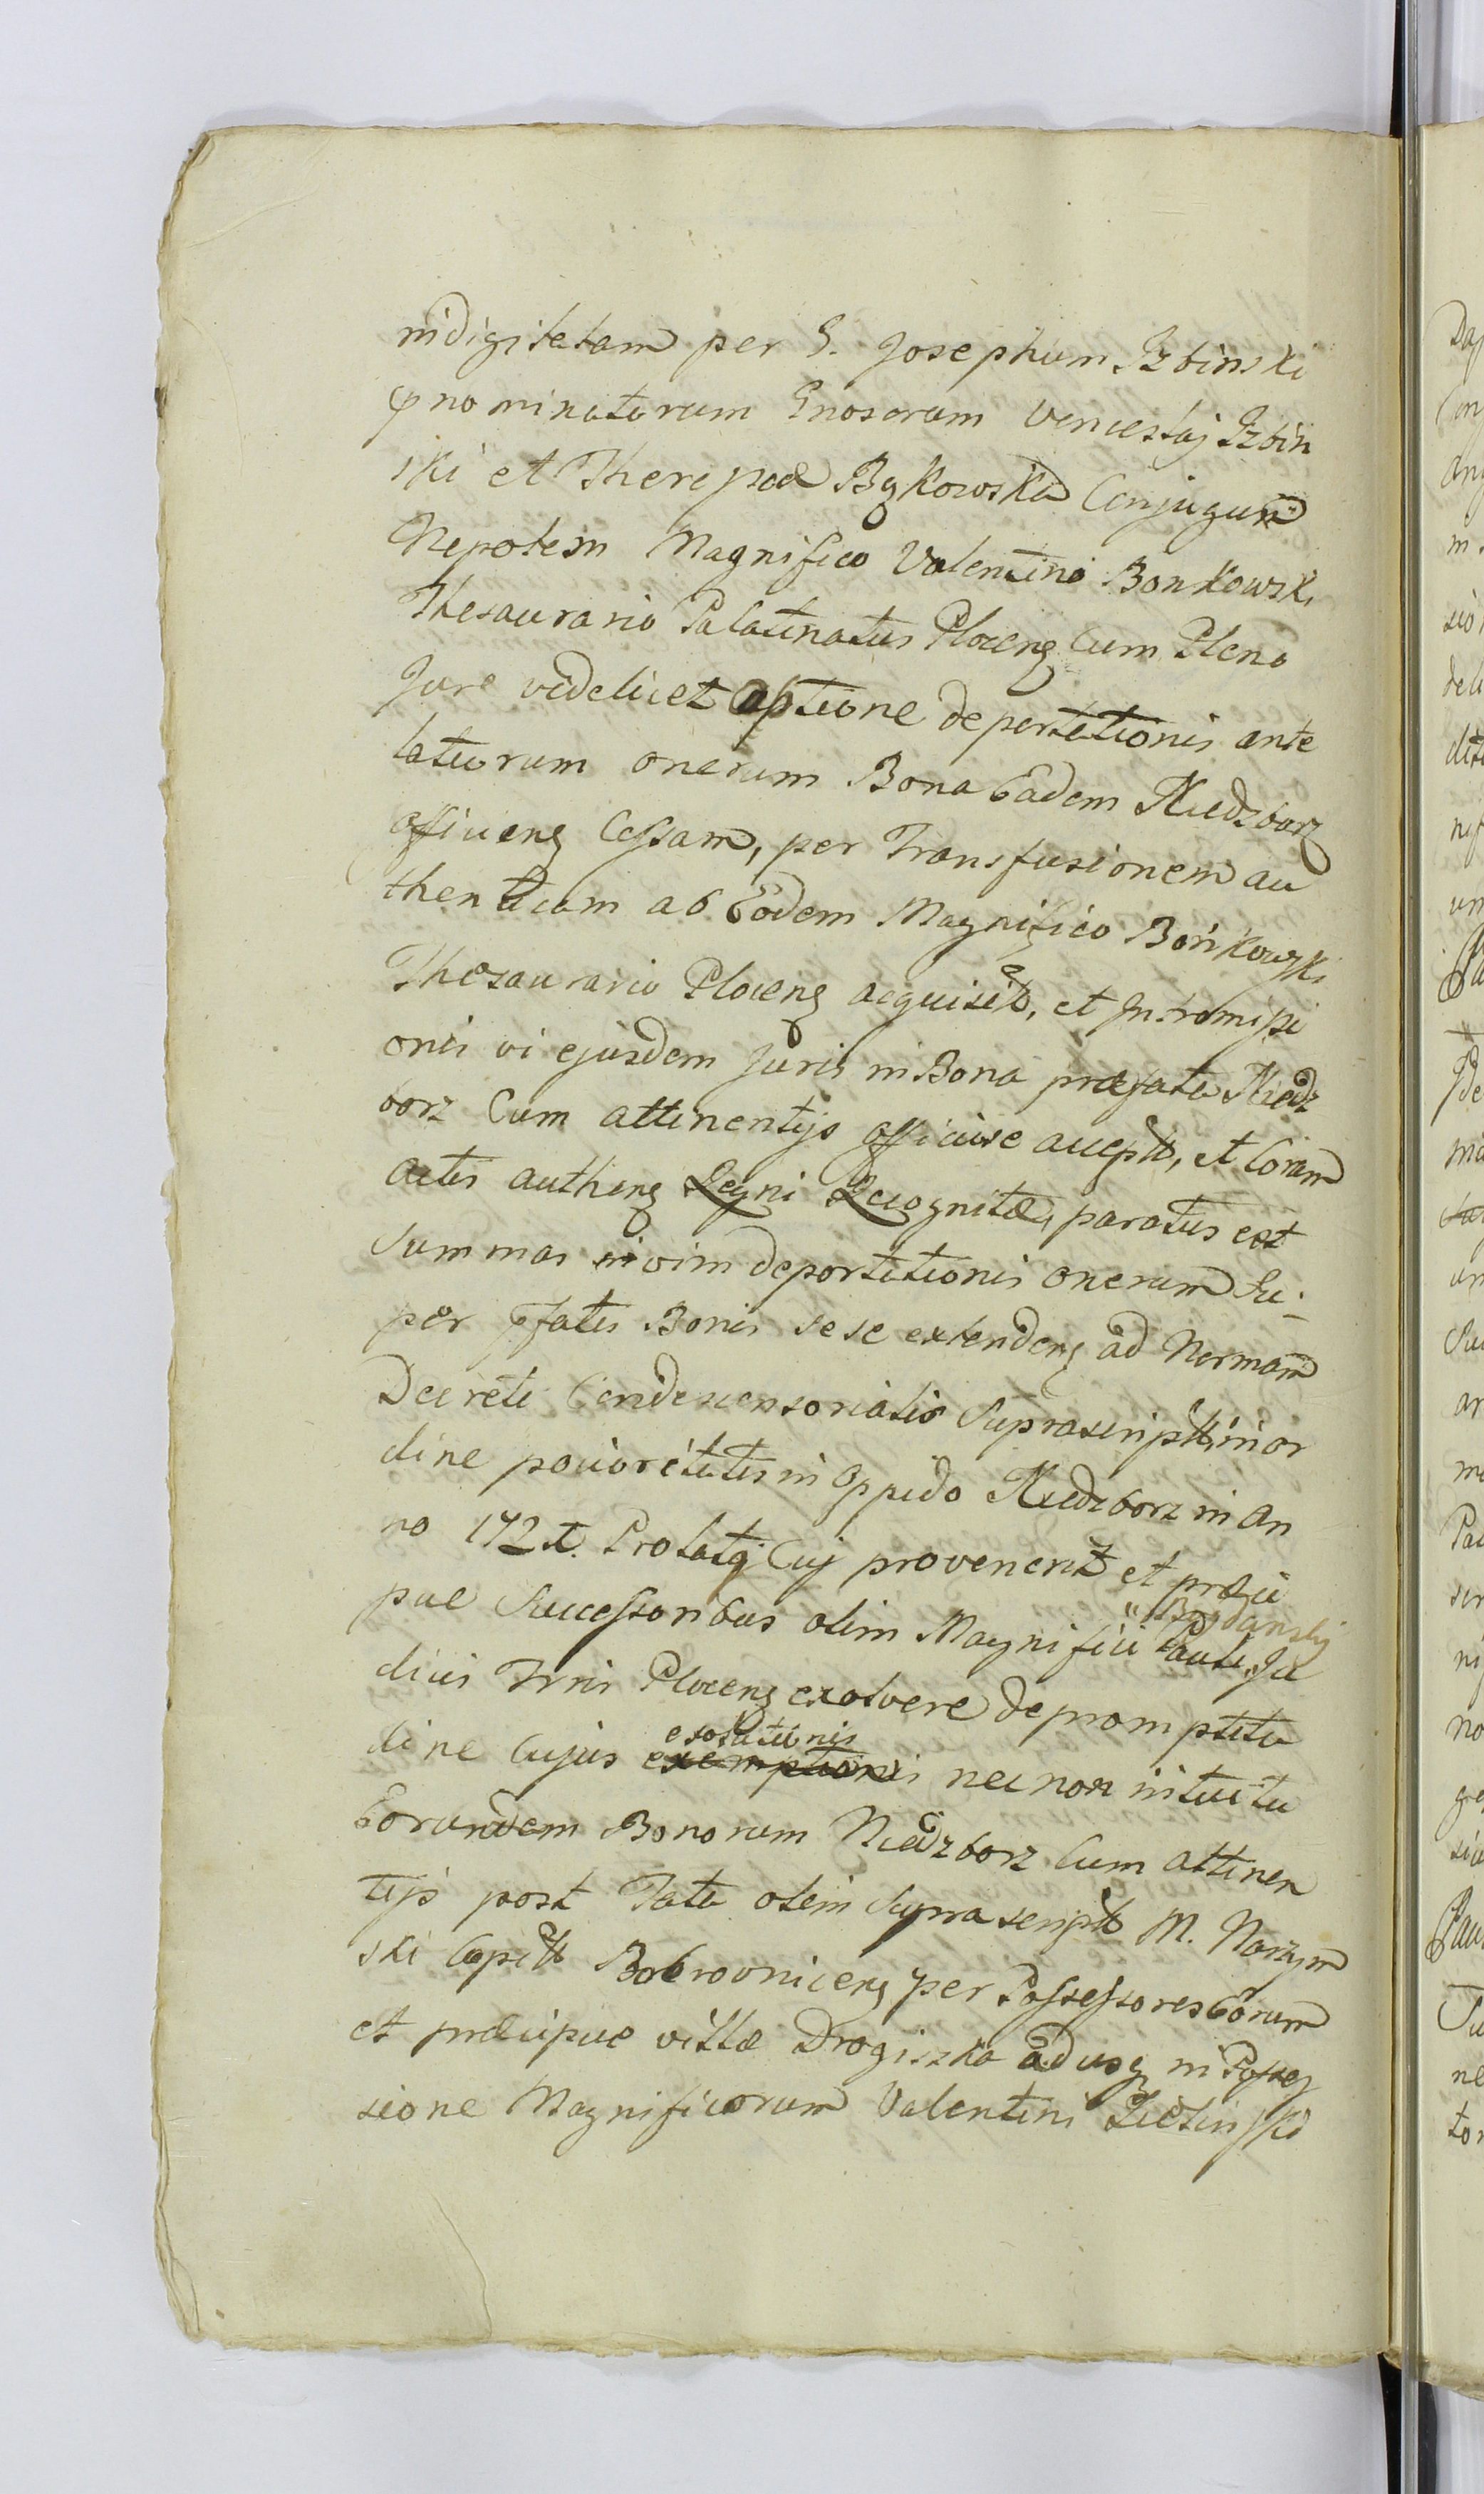 indigitatam per G. Josephum Izbinski
pnominatorum Gnosorum Venceslaj Izbin
ski et Theressae Bykowskie Conjugum
Nepotem Magnifico Valentino Bonkowski
Thesaurario Palatinatus Plocens Cum Pleno
Jure videlicet optione deportationis ante
latiorum onerum Bona Eadem Niedzborz
afficiens Cessam, per Transfusionem au
thenticam ab Eodem Magnifico Bońkowski
Thesaurario Plocens acquisit, et Intromissi
onis vi ejusdem Juris in Bona praefata Niedz
borz Cum attinentijs officiose accept, et Coram
actis authens Regni Recognitae, paratus est
Summas in vim deportationis onerum Su-
per pfatis Bonis sese extendens ad Normam
Decreti Condescensorialis Suprascript in or
dine prioritatis in oppido Niedzborz in An
no 172 Prolatj Cuj provenerit et praeci
pue Successoribus olim Magnifici Pauli Bogdanskj Ju
dicis Trris Plocens exolvere de promptitu
dine Cujus exolutionis nec non intuitu
Eorundem Bonorum Niedzborz Cum attinen
tijs post Fata olim Suprascript M. Narzym
ski Capit Bobrovnicens per Possessores Eorum
et praecipue villae Drogiszka ad usq in Posses
sione Magnificorum Valentini Zielinski